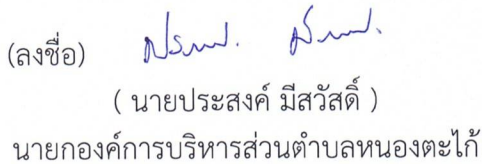 (ลงชื่อ)
( นายประสงค์ มีสวัสดิ์ )
นายกองค์การบริหารส่วนตำบลหนองตะไก้